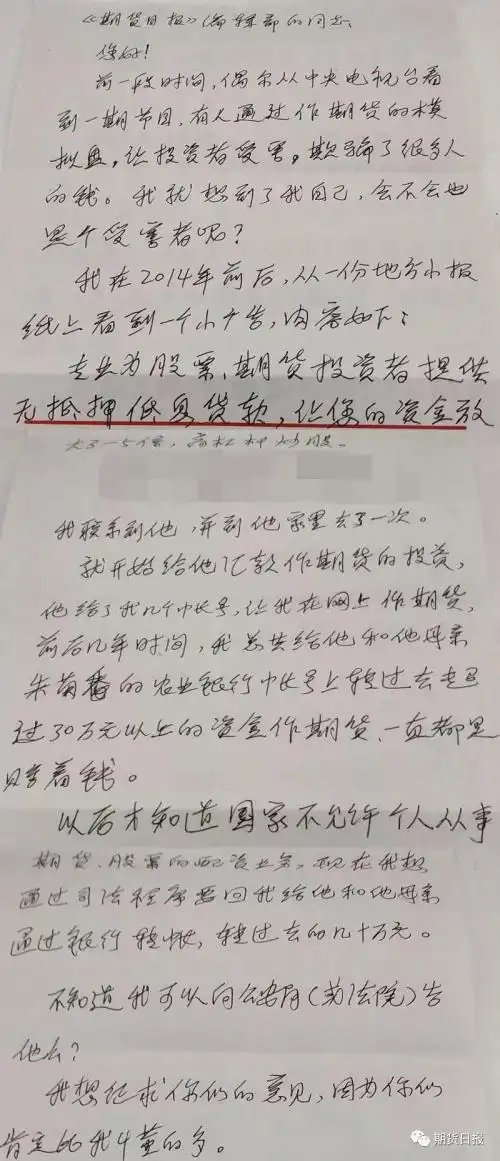 《期货日报》编辑部的同志:
您好!
前一段时间,偶尔从中央电视台看
到一期节目,有人通过作期货的模
拟盘,让投资者受害,欺骗了很多人
的钱。我就想到了我自己,会不会也
是个受害者呢?
我在2014年前后,从一份地方小报
纸上看到一个小广告,内容如下:
专业为股票、期货投资者提供
无抵押低息贷款,让您的资金放
大3-5倍,高杠杆炒股。
我联系到他,并到他家里去了一次。
就开始给他汇款作期货的投资,
他给了我几个帐号,让我在网上作期货,
前后几年时间,我总共给他和他母亲
朱菊番的农业银行帐号上转过去超
过30万元以上的资金作期货、一直都是
亏着钱。
以后才知道国家不允许个人从事
期货、股票的配资业务,现在我想
通过司法程序要回我给他和他母亲
通过银行转帐,转过去的几十万元。
不知道我可以向公安局(或法院)告
他么?
我想征求你们的意见,因为你们
肯定比我懂的多。
期货日报